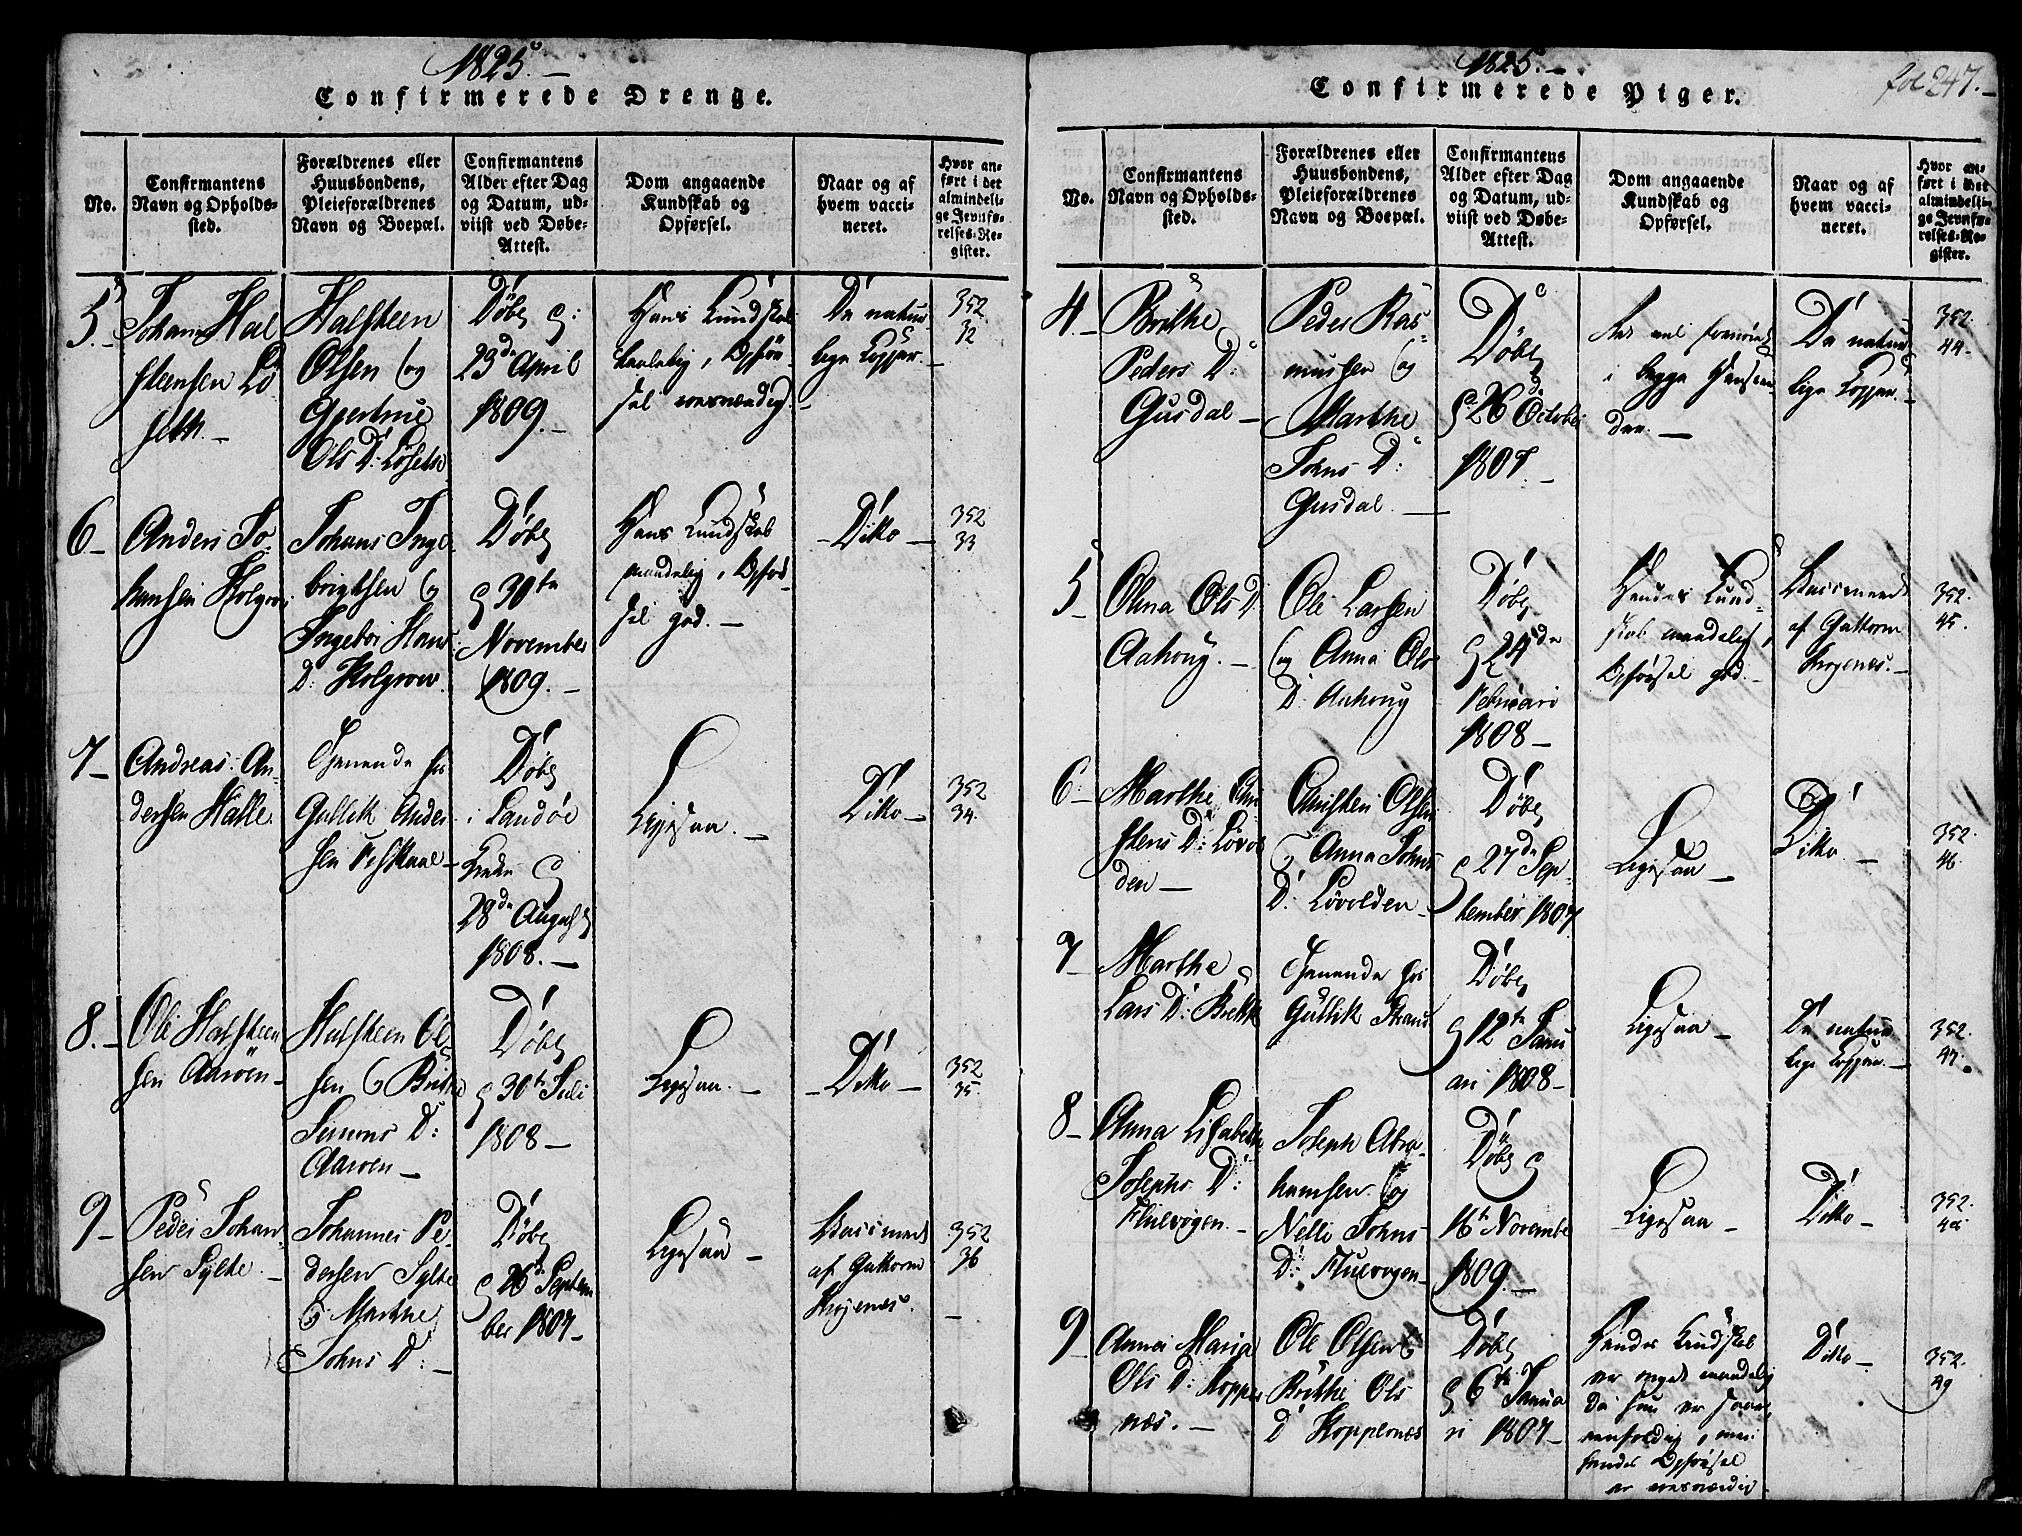 1825.
Confirmerede Drenge.
No.
Confirmantens
Navn og Opholds-
sted.
Forældrenes eller
Huusbondens,
Pleieforældrenes
Navn og Boepæl.
Confirmantens
Alder efter Dag
og Datum, ud-
viist ved Døbe-
Attest.
Dom angaaende
Kundskab og
Opførsel.
Naar og af
hvem vacci-
neret.
Hvor an-
ført i det
almindeli-
ge Jevnfø-
relses-Re-
gister.
5.
Johan Hal
steensen Lø
seth.
Halsteen
Olsen og
Gjertrue
Ols D: Løseth
Døbt d:
23de April
1809.
Hans Kundskab
Opfør-
sel
Da natur
lige Kopper.
352
32
6
Anders Jo-
hansen
Johans Inge-
brigtsen og
Ingebor Hans
D:
Døbt
d 30te
November
1809.
Hans Kundskab
maadelig, Opfør
sel god.
Ditto
352
33
7
Andreas An-
dersen Halle.
Tjenende hos
Gullik Ander
sen
Døbt
i Sandøe
d
28de August
1808.
Ligesaa.
Ditto
352
34.
8.
Ole Halsteen
sen Aaroen
Halsteen Ol
sen & Brithe
Simons D:
Aaroen
Døbt
d 30te Juli
1808
Ligesaa.
Ditto
352
35.
9
Peder Johan
sen Sylte.
Johannes Pe-
dersen Sylte
& Marthe
Johns D:
Døbt
d 26de Septem
ber 1807
Ligesaa
af Guttorm
352
36
1825.
Confirmerede Piger.
fol 247.
No.
Confirmantens
Navn og Opholds-
sted.
Forældrenes eller
Huusbondens,
Pleieforældrenes
Navn og Boepæl.
Confirmantens
Alder efter Dag
og Datum, ud-
viist ved Døbe-
Attest.
Dom angaaende
Kundskab og
Opførsel.
Naar og af
hvem vacci-
neret.
Hvor an-
ført i det
almindeli-
ge Jevnfø-
relses-Re-
gister.
4.
Brithe
Peders D:
Gusdal
Peder Ras-
mussen og
Marthe
Johns D:
Gusdal.
Døbt
d 26de October
1807.
i begge Henseen
der.
Da natur
lige Kopper.
352.
44.
5
Anna Ols D:
Aahoug.
Ole Larsen
og Anna Ols
D: Aahoug
Døbt
d 24de
Februari
1808
Hendes Kund
skab maadelig,
Opførsel god.
af Guttorm
352.
45.
6
Marthe Chri
stens D: Løvol
den
Christen Olsen
& Anna Johns
D: Løvolden
Døbt
d 27de Sep-
tember 1807
Ligesaa
Ditto.
352.
46.
7
Marthe
Lars D: Brekk
Tjenende hos
Gullik Strand
Døbt
d 12te Janu
ari 1808
Ligesaa
Da natur
lige Kopper.
352.
47.
8
Anna Lisabeth
Josephs D:
Flulvogen.
Joseph Abra-
hamsen og
Nelle Johns
D: Flulvogen
Døbt d
16te Novembe
1809.
Ligesaa
Ditto
352.
48
9
Anne Maria
Ols D: Kopper
næs.
Ole Olsen &
Brithe Ols
D Koppernæs
Døbt
d 6te Janua
ri 1807
Hendes Kundskab
er meget maadelig
da hun er
eenfoldig, men
hendes Opførsel
er
Ditto
352.
49